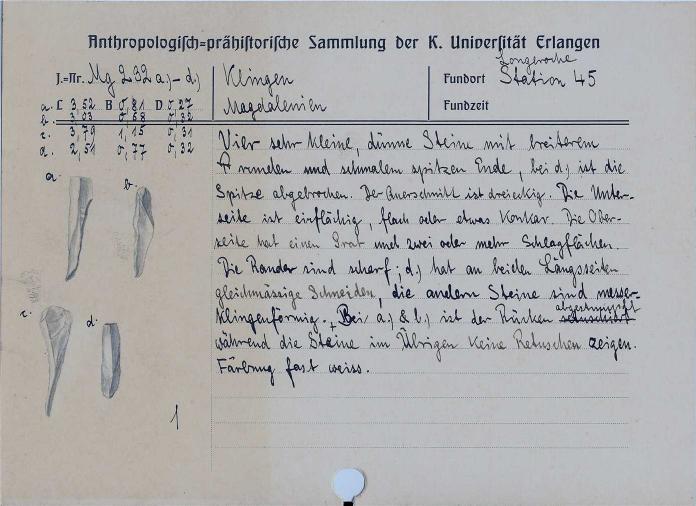 Anthropologisch=prähistorische Sammlung der K. Universität Erlangen
J.=Nr. Mg 232 a.)-d.)
Klingen
Magdalenien
Longeroche
Fundort Station 45
Fundzeit
a. L 3,52 B 0,81 D 0,27
b. 3,03 0,58 0,32
c. 3,79 1,15 0,31
d. 2,51 0,77 0,32
Vier sehr kleine, dünne Steine mit breiterem
runden und schmalem spitzen Ende, bei d.) ist die
Spitze abgebrochen. Der Querschnitt ist dreieckig. Die Unter-
seite ist einflächig, flach oder etwas konkav. Die Ober-
seite hat einen Grat und zwei oder mehr Schlagflächen.
Die Ränder sind scharf; d.) hat an beiden Längsseiten
gleichmässige Schneiden, die andern Steine sind messer-
klingenförmig. Bei a.) & b.) ist der Rücken abgestumpft
während die Steine im Übrigen keine Retuschen zeigen.
Färbung fast weiss.
a.
b.
c.
d.
1